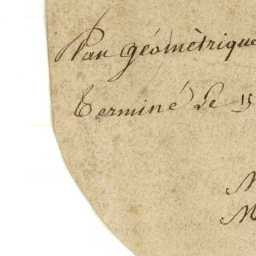 Plan géomètrique
Terminé Le 15
M
M